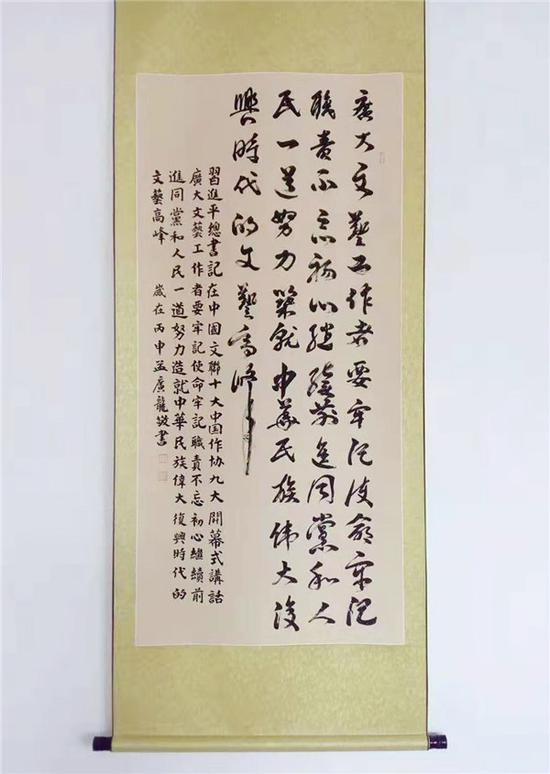 廣大文藝工作者要牢记使命牢记
職責不忘初心继续前進同黨和人
民一道努力築就中華民族伟大復
興時代的文藝高峰
習進平總書記在中國文聯十大中国作協九大開幕式講話
廣大文藝工作者要牢記使命牢記職責不忘初心繼續前
進同黨和人民一道努力造就中華民族偉大復興時代的
文藝高峰 歲在丙申孟廣龍敬書